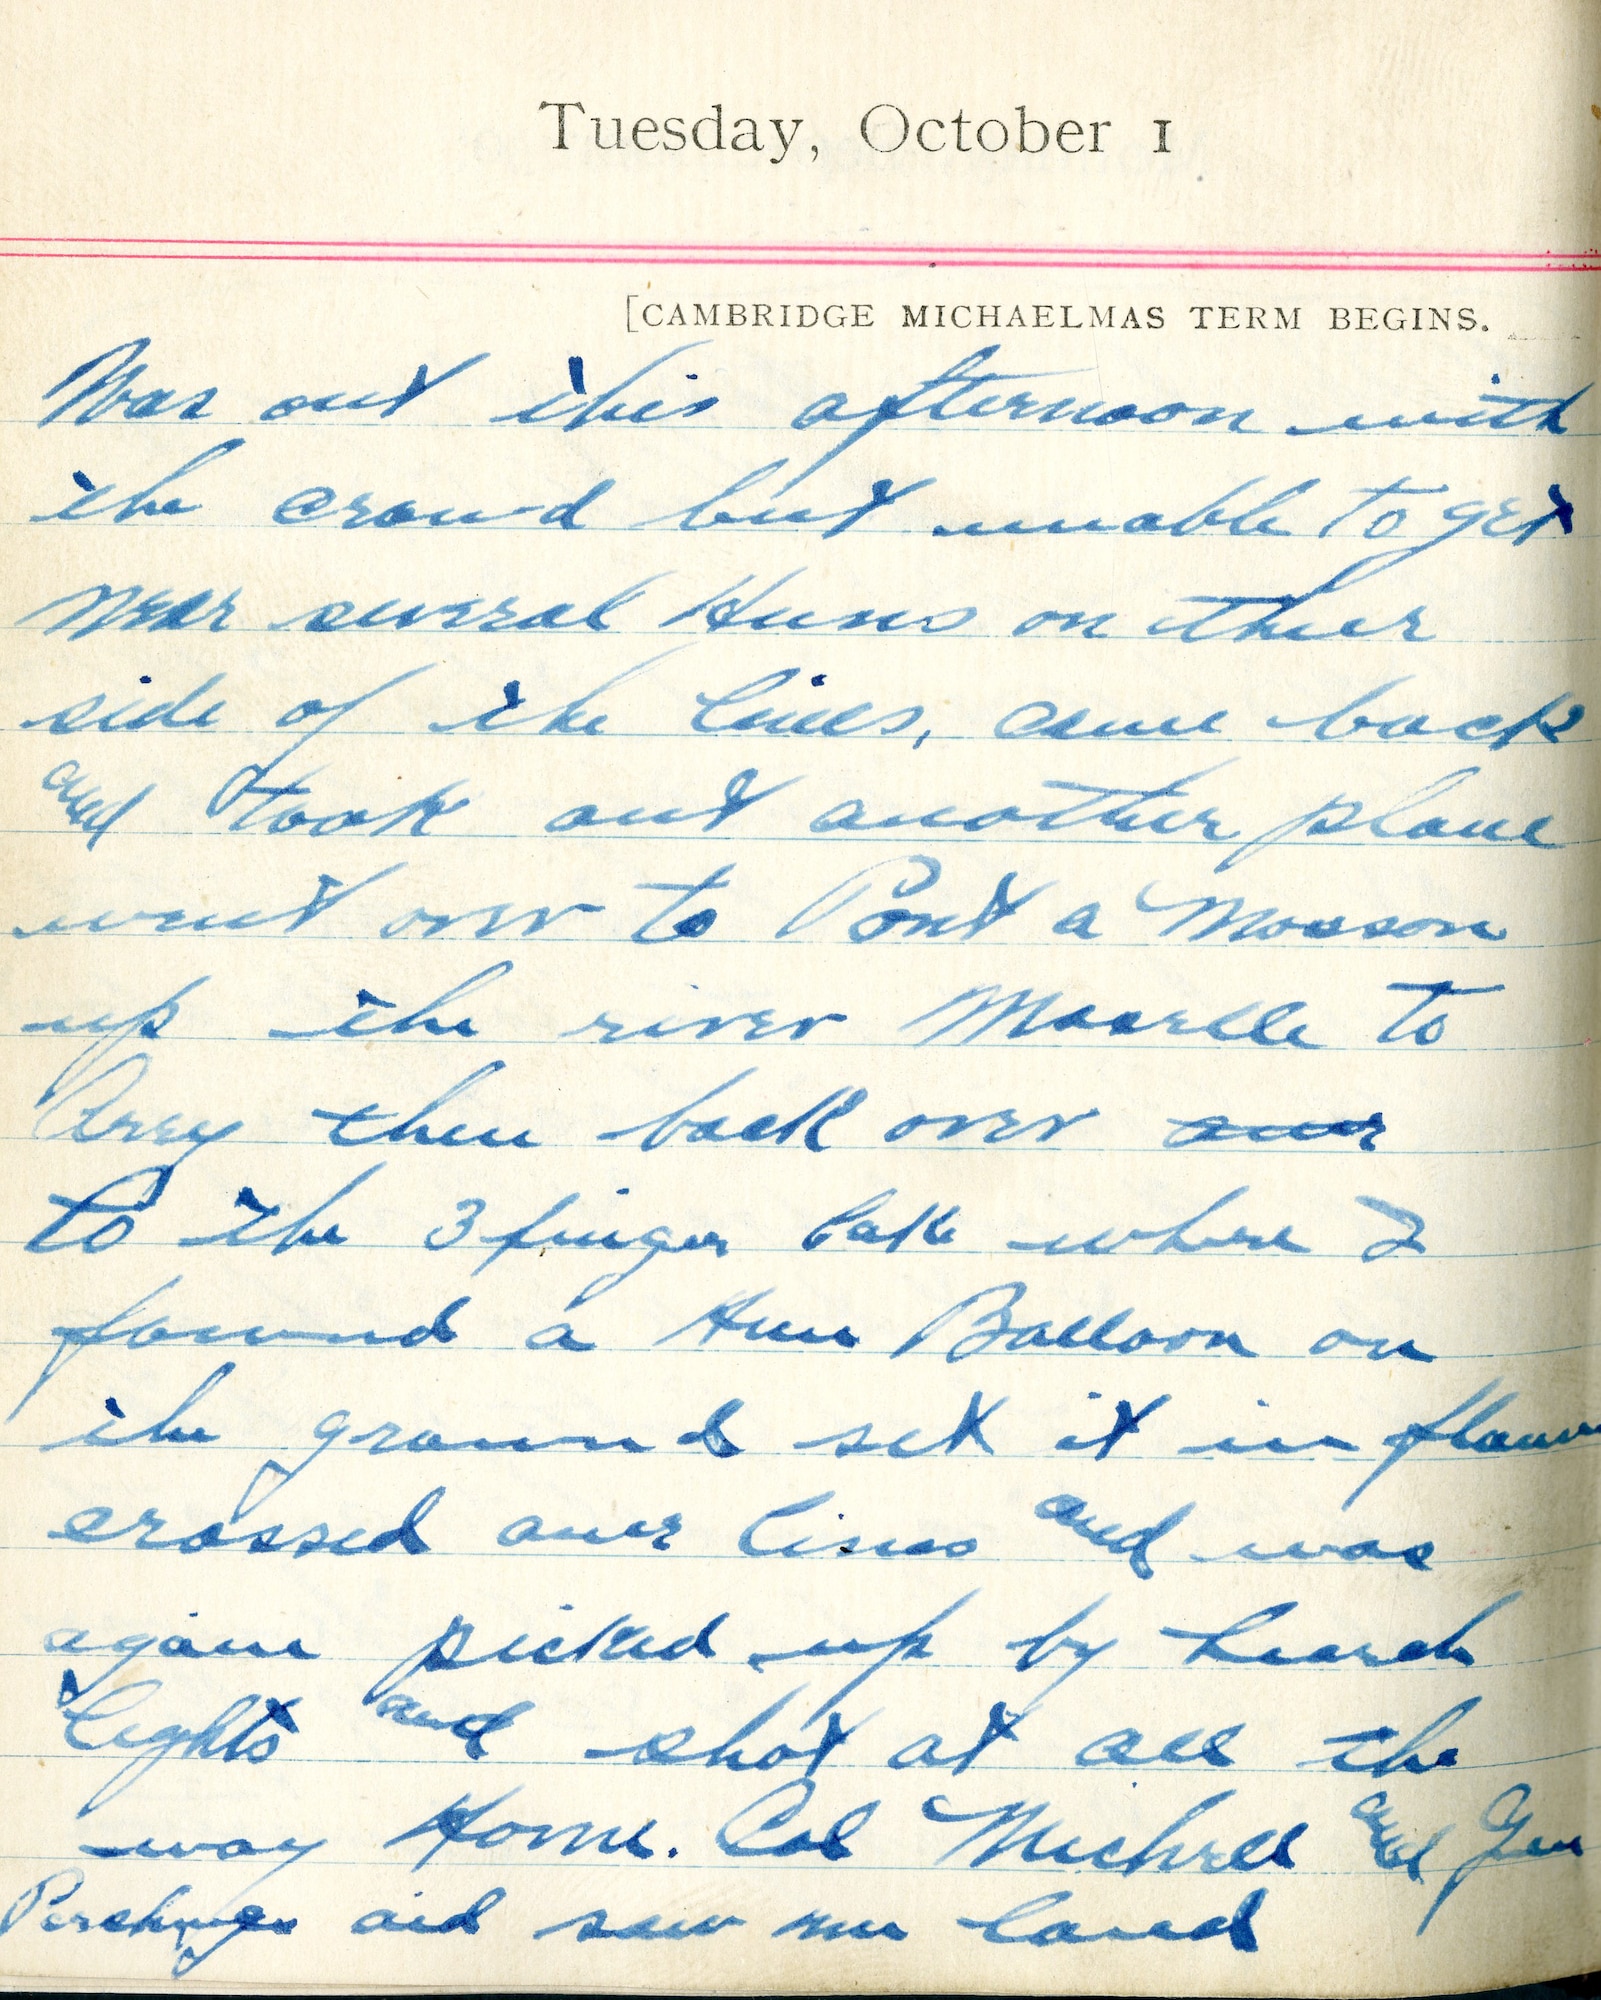 Tuesday, October 1
[CAMBRIDGE MICHAELMAS TERM BEGINS.
Was out this afternoon with
the crowd but unable to get
near several Huns on thier
side of the lines, came back
and took out another plane
went over to Pont a Mosson
up the river Moselle to
Arry then back over our
to the 3 finger lake where I
found a Hun Balloon on
the ground set it in flames
crossed our lines and was
again picked up by search
lights and shot at all the
way Home. Col Michell and Gen
Pershings aid saw me land